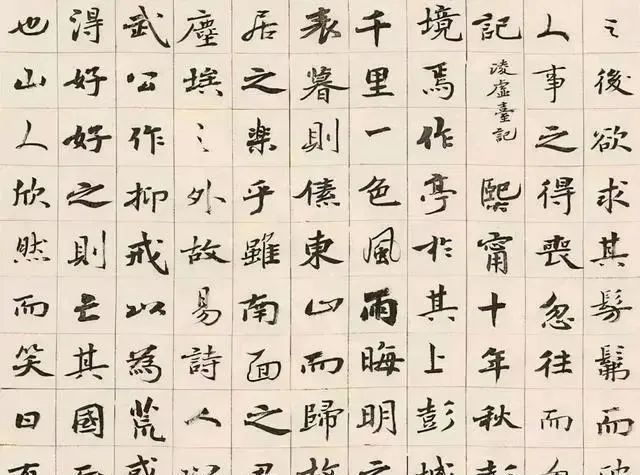 之後欲求其髣髴而
人事之得喪忽往而
記凌虛臺記熙甯十年秋彭
境焉作亭於其上彭
千里一色風雨晦明
表暮則傃東山而歸
居之樂乎雖南面之
塵埃之外故易詩人
武公作抑戒以為荒
得好好之則亡其國
也山人欣然而笑曰